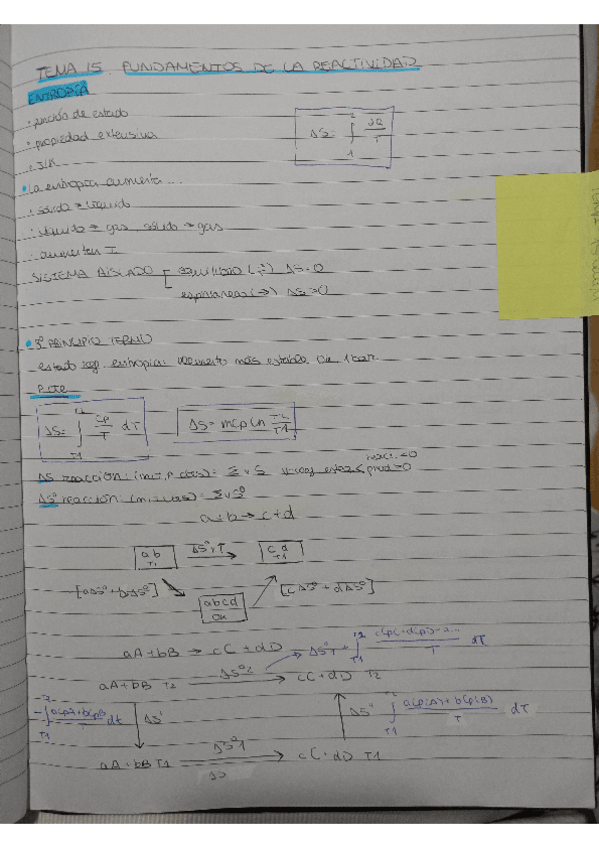 TEMA 15. FUNDAMENTOS DE LA REACTIVIDAD
ENTROPÍA
· función de estado
· propiedad extensiva
ΔS = ∫₁² ∂Q/T
· J/K
· La entropía aumenta ...
· sólido → líquido
· líquido → gas, sólido → gas
· aumentan T
SISTEMA AISLADO [ equilibrio (⇌) ΔS=0
espontáneo (→) ΔS>0
· 3º PRINCIPIO TERMO
estado ref. entropía: elemento más estable 0K 1 bar.
P CTE
ΔS = ∫T1T2 CP/T dT
ΔS = mCp Ln T2/T1
ΔS reacción: = Σ ν S
react. <0
prod >0
ΔSº reacción = Σ ν Sº
a+b → c+d
ab T1
ΔSº, T
cd T1
-[aΔSº+bΔSº]
abcd 0K
[cΔSº + dΔSº]
aA+bB → cC+dD
ΔSºT + ∫T1T2 cCp(C)+dCp(D)-a... / T dT
aA+bB T2 ΔSº2 → cC+dD T2
-∫T1T2 aCp(A)+bCp(B) / T dt
ΔS'
ΔS"
∫T1T2 aCp(A)+bCp(B) / T dT
aA+bB T1 ΔSº1 → cC+dD T1